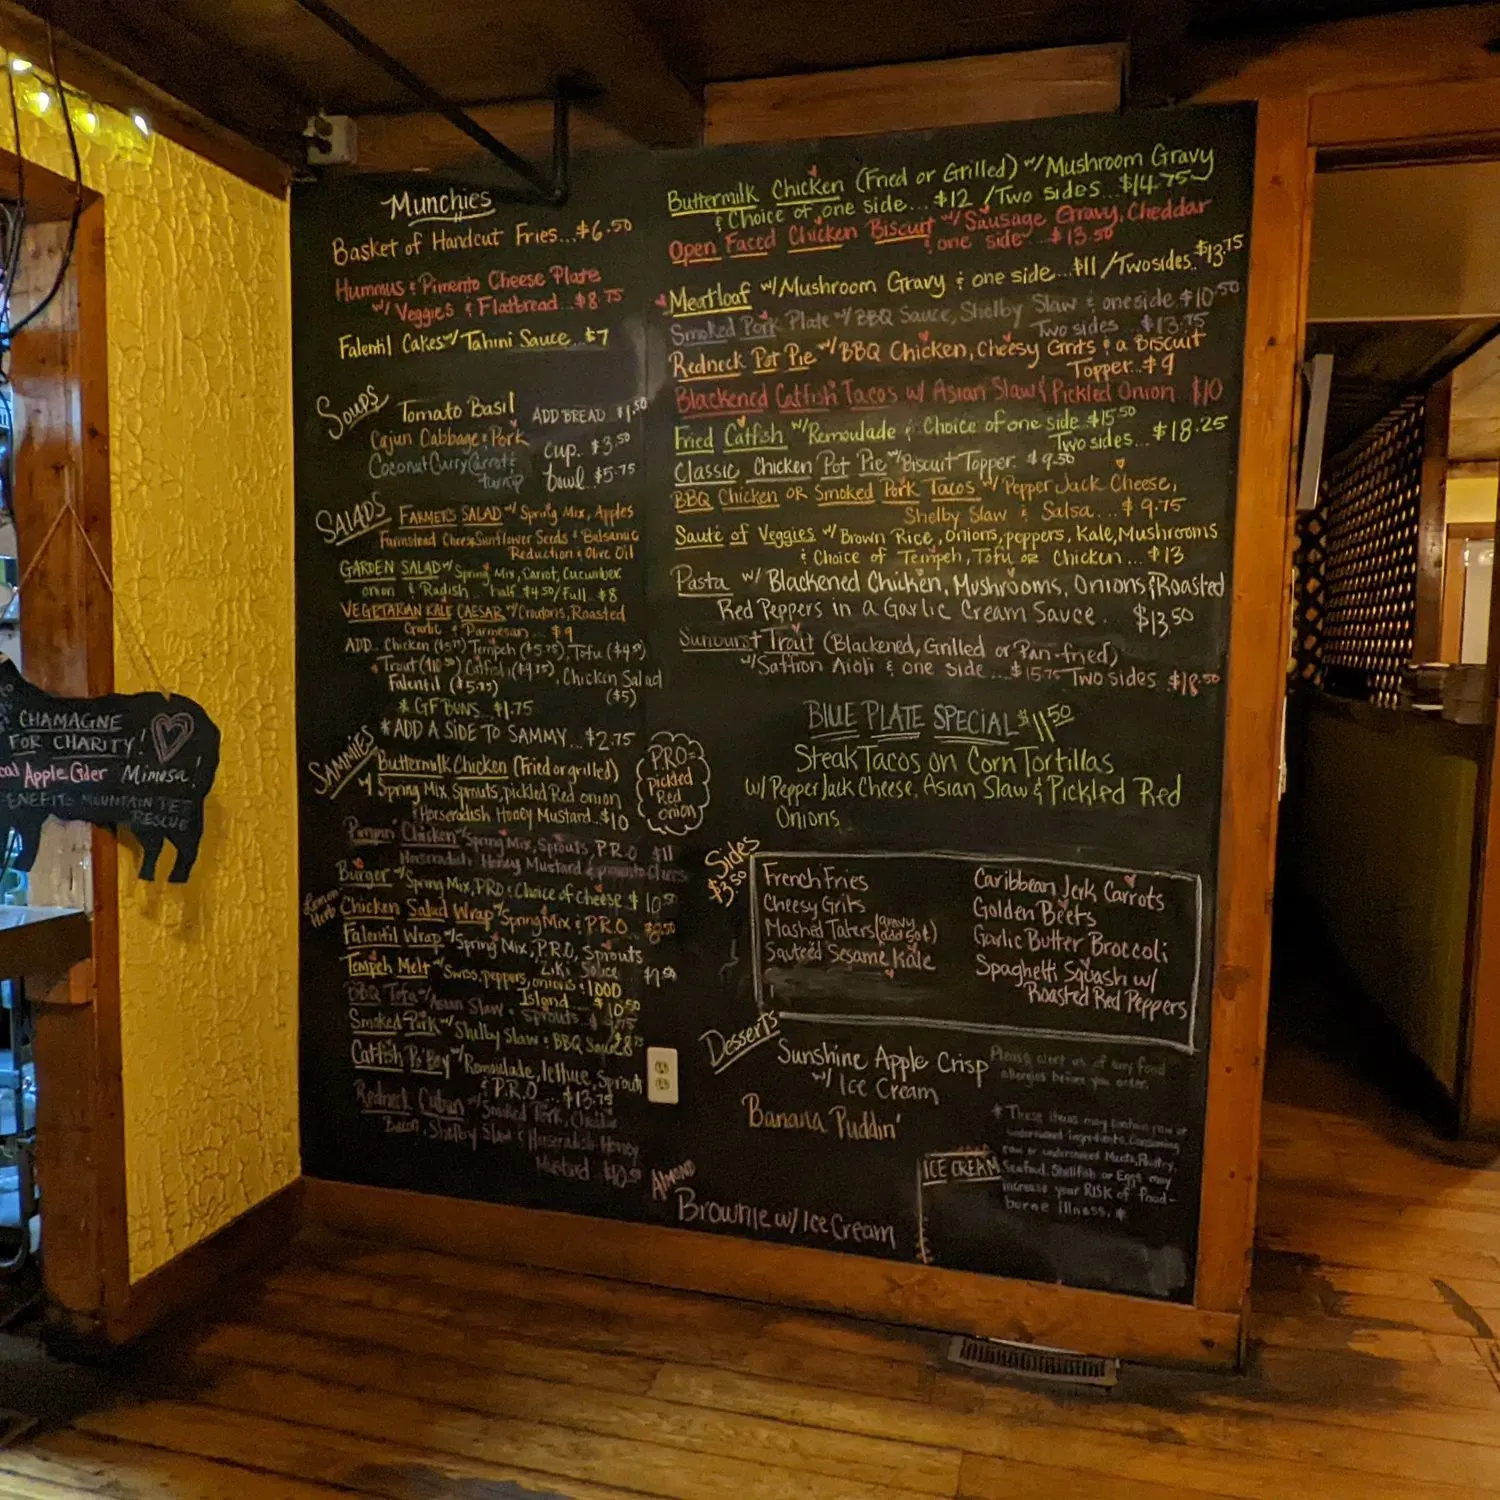 Munchies
Basket of Handcut Fries...$6.50
Hummus & Pimento Cheese Plate
w/ Veggies & Flatbread...$8.75
Falentil Cakes w/ Tahini Sauce...$7
Soups
Tomato Basil
ADD BREAD $1.50
Cajun Cabbage & Pork
cup. $3.50
Coconut Curry Carrot &
turnip
bowl $5.75
SALADS
FARMER'S SALAD w/ Spring Mix, Apples
Farmstead Cheese, Sunflower Seeds & Balsamic
Reduction & Olive Oil
GARDEN SALAD w/ Spring Mix, Carrot, Cucumber
onion & Radish... half $4.50/Full $8
VEGETARIAN KALE CAESAR w/ Croutons, Roasted
Garlic & Parmesan... $9
ADD... Chicken Tempeh ($5.75), Tofu ($4.50)
Trout Catfish ($9.75), Chicken Salad
($5)
Falentil ($5.75)
* GF BUNS $1.75
* ADD A SIDE TO SAMMY... $2.75
SAMMIES
Buttermilk Chicken (Fried or grilled)
w/ Spring Mix Sprouts, pickled Red onion
& Horseradish Honey Mustard...$10
P.R.O=
Pickled
Red
onion
Pimpin' Chicken w/ Spring Mix, Sprouts, P.R.O $11
Horseradish Honey Mustard & pimento cheese
Burger w/ Spring Mix, PRO & Choice of cheese $10.50
Lemon
Herb
Chicken Salad Wrap w/ Spring Mix & P.R.O
Falentil Wrap w/ Spring Mix, P.R.O, Sprouts
Ziki Sauce
Tempeh Melt w/ Swiss, peppers, onions & 1000
Island... $10.50
BBQ Tofu w/ Asian Slaw & Sprouts $9.75
Smoked Pork w/ Shelby Slaw & BBQ Sauce
Catfish Po'Boy w/ Remoulade, lettuce, Sprouts
& P.R.O... $13.75
Redneck Cuban w/ Smoked Pork,
Bacon, Shelby Slaw & Horseradish Honey
Mustard $10.50
Buttermilk Chicken (Fried or Grilled) w/ Mushroom Gravy
& Choice of one side... $12 / Two sides... $14.75
Open Faced Chicken Biscuit w/ Sausage Gravy, Cheddar
& one side $13.50
Meatloaf w/ Mushroom Gravy & one side...$11 / Two sides..$13.75
Smoked Pork Plate w/ BBQ Sauce, Shelby Slaw & one side $10.50
Two sides... $13.75
Redneck Pot Pie w/ BBQ Chicken, Cheesy Grits & a Biscuit
Topper.. $9
Blackened Catfish Tacos w/ Asian Slaw & Pickled Onion $10
Fried Catfish w/ Remoulade & Choice of one side $15.50
Two sides... $18.25
Classic Chicken Pot Pie w/ Biscuit Topper. $9.50
BBQ Chicken OR Smoked Pork Tacos w/ Pepper Jack Cheese,
Shelby Slaw & Salsa... $9.75
Sauté of Veggies w/ Brown Rice, Onions, peppers, Kale, Mushrooms
& Choice of Tempeh, Tofu or Chicken... $13
Pasta w/ Blackened Chicken, Mushrooms, Onions & Roasted
Red Peppers in a Garlic Cream Sauce. $13.50
Sunburst Trout (Blackened, Grilled or Pan-fried)
w/ Saffron Aioli & one side...$15.75 Two sides $18.50
BLUE PLATE SPECIAL $11.50
Steak Tacos on Corn Tortillas
w/ Pepper Jack Cheese, Asian Slaw & Pickled Red
Onions
Sides
$3.50
French Fries
Cheesy Grits
Mashed Taters (gravy add 50¢)
Sautéed Sesame Kale
Caribbean Jerk Carrots
Golden Beets
Garlic Butter Broccoli
Spaghetti Squash w/
Roasted Red Peppers
Desserts
Sunshine Apple Crisp
w/ Ice Cream
Banana Puddin'
ALMOND
Brownie w/ Ice Cream
ICE CREAM
Please alert us of any food
allergies before you order.
* These items may contain raw or
undercooked ingredients. Consuming
raw or undercooked Meats, Poultry,
Seafood, Shellfish or Eggs may
increase your RISK of food-
borne illness. *
CHAMAGNE
FOR CHARITY!
Apple Cider Mimosa!
BENEFITS MOUNTAIN PET
RESCUE